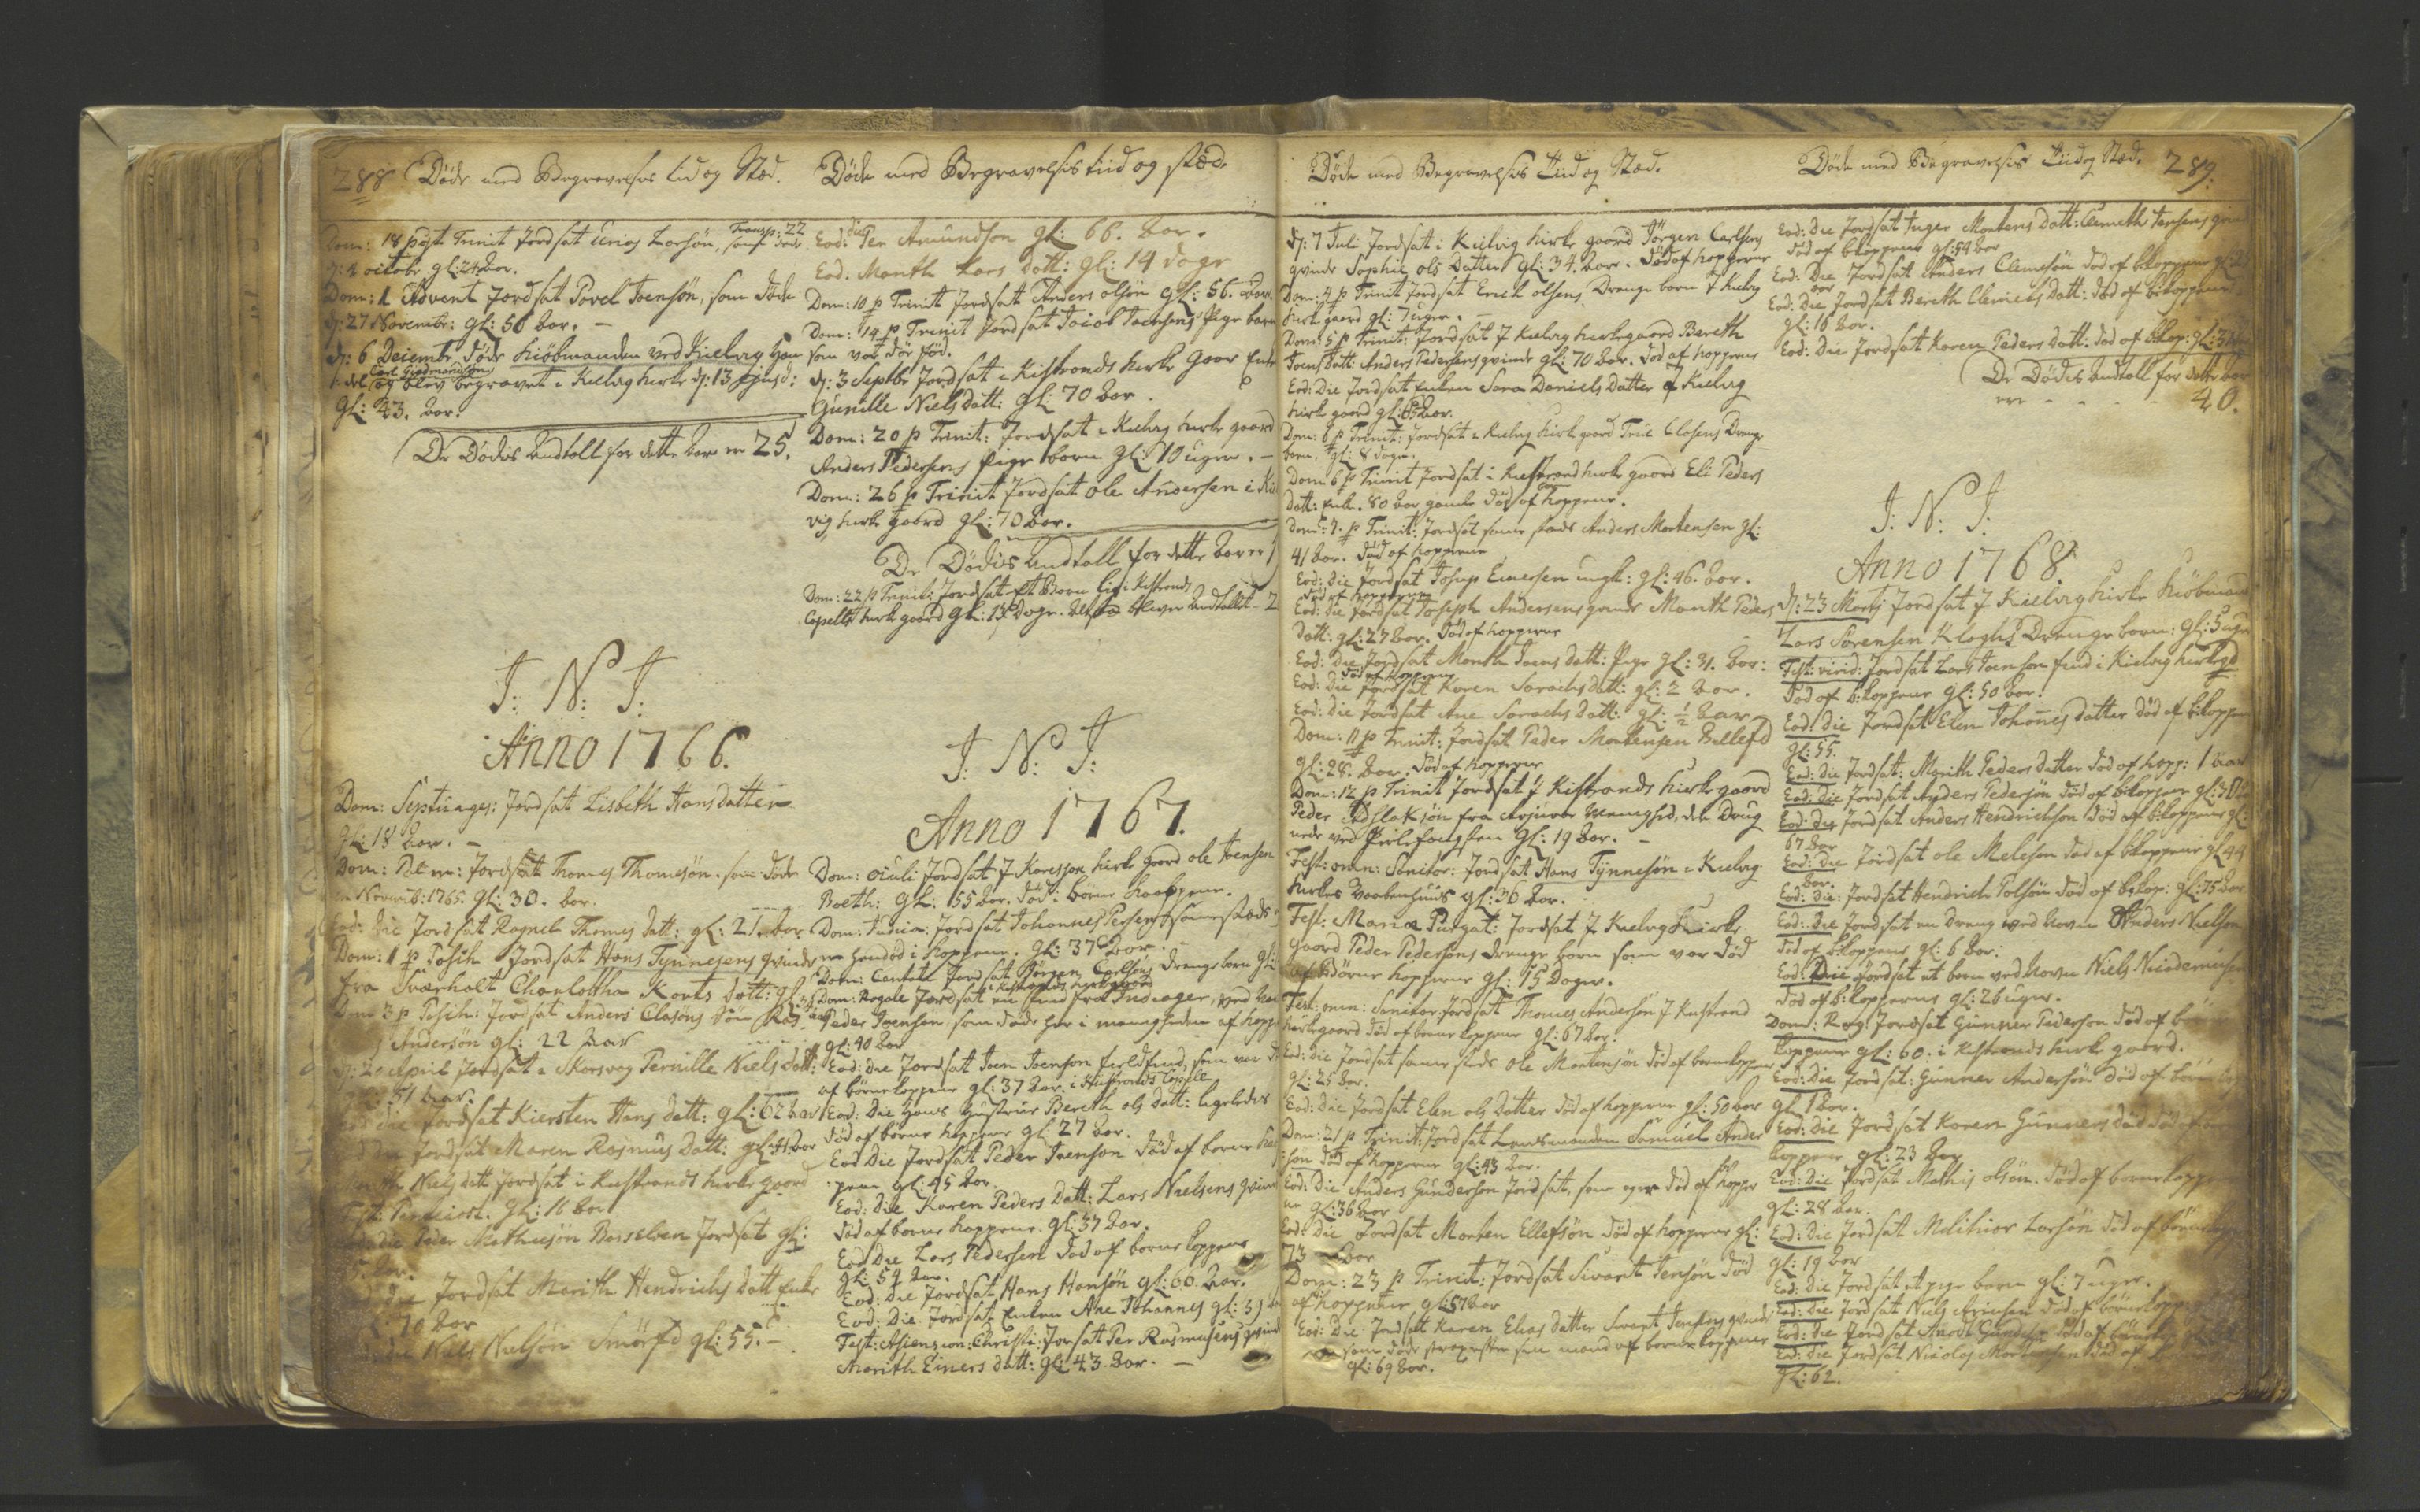 288 Døde med Begravelses tid og Sted.
Dom: 18 post Trinit Jordsat Larsøn, Transp: 22 som døde
d: 4 octobr gl: 24 aar.
Dom: 1 Advent Jordsat Povel Joensøn, som døde
d: 27 Novembr: gl: 58 aar. –
d: 6 Decembr døde kiøbmanden ved Kielvig
Carl Giedmandsøn
og blev begravet i Kielvig kirke d: 13
gl: 43. aar.
De Dødes Andtall for dette aar er 25.
J: N: J:
Anno 1766.
Dom: Septuages: Jordsat Lisbeth Hansdatter
gl: 18 aar. –
Dom: Jordsat Thomes Thomesøn, som døde
Novemb: 1765. gl: 30. aar.
Eod: Die Jordsat Ragnel Thomes datt: gl: 21. aar
Dom: 1 p Pasch Jordsat Hans Tynnesens qvinde
fra Sværholt Charlottha Korts datt: gl:
Dom 3 p Pasch: Jordsat Anders Clasøns søn
Andersøn gl: 22 aar
d: 20 April Jordsat i Skarsvog Pernille Niels datt:
51 aar.
Eod die Jordsat Kiersten Hans datt: gl: 62 aar
die Jordsat Maren Rasmus datt: gl: 41 aar
Niels datt Jordsat i Kiistrands kirke gaard
gl: 16 aar
die Peder Mathiesøn Jordsat gl:
aar.
die Jordsat Marith Hendrichs datt Enke
70 aar
die Niels Nielsøn Smørfd gl: 55. –
Døde med Begravelses tiid og sted
Eod: die Per Amundsøn gl: 66. aar.
Eod: Marith Lars datt: gl: 14 dage
Dom: 10 p Trinit Jordsat Anders olsøn gl: 56. aar.
Dom: 14 p Trinit Jordsat Jacob Joensens Pige barn
som var død fød.
d: 3 Septbr Jordsat i Kistrands kirke gaar Enke
Gunille Niels datt: gl: 70 aar.
Dom: 20 p Trinit: Jordsat i Kielvig kirke gaard
Anders Pedersens Pige barn gl: 10 uger. –
Dom: 26 p Trinit Jordsat ole Andersen i
vig kirke gaard gl: 70 aar.
De Dødes Andtall for dette aar er
Dom: 22 p Trinit: Jordsat et Barn i Kistrands
Capells kirke gaard gl: 13 Dage. bliver Andtallet
J: N: J:
Anno 1767.
Dom: oculi Jordsat J kirke gaard ole Joensen
gl: 55 aar. død børne koopperne.
Dom: Judica: Jordsat Johannes Persen samesteds
kopperne. gl: 37 aar.
Dom: Cantate Jordsat Jørgen Carlsøns drenge barn gl:
i Kistrands kirke gaard
Dom: Rogate Jordsat en fra Indiager, ved
Peder Joensøn, som døde her i menigheden af kopp
gl: 40 aar
Eod: die Jordsat Joen Joensøn som var
af børnekopperne gl: 37 aar. i Kistrands Capelle
Eod: Die Hans Hustrue Bereth ols datt: ligeledes
død af børne kopperne gl: 27 aar.
Eod Die Jordsat Peder Joensøn død af børne
perne gl: 45 aar.
Eod: Die Karen Peders datt: Lars Nielsens qvinde
død af børne kopperne. gl: 37 aar.
Eod Die Lars Pedersen død af børne kopperne
gl: 59 aar.
Eod: Die Jordsat Hans Hansøn gl: 60. aar.
Eod: Die Jordsat Enken Ane Johannes gl: 59
Fest: Asiension: Christi: Jorsat Per Rasmusens qvinde
Marith Einers datt: gl: 43 aar. –
Døde med Begravelses Tiid og Sted.
d: 7 Juli Jordsat i Kielvig kirke gaard Jørgen Carlsens
qvinde Sophie ols Datter gl: 34. aar. død af kopperne
Dom: 4 p Trinit Jordsat Erich olsens Drenge barn J Kielvig
kirke gaard gl: 7 uger. –
Dom: 5 p Trinit: Jordsat J Kielvig kirkegaard Bereth
Joens datt: Anders Pedersens qvinde gl: 70 aar. død af kopperne
Eod: Die Jordsat Enken Sara Daniels Datter J Kielvig
kirke gaard gl: 65 aar.
Dom: 6 p Trinit: Jordsat i Kielvig kirke gaard Clasens Drenge
barn gl: 8 dage.
Dom: 6 p Trinit Jordsat i Kiistrand kirke gaard Eli Peders
datt: Enke. 80 aar gamle død af kopperne.
Dom: 7. p Trinit: Jordsat same steds Anders Mortensen gl:
41 aar. død af kopperne
Eod: Die Jordsat Josup Einersen ungk: gl: 46. aar.
død af kopperne
Eod: Die Jordsat Joseph Andersens qvinde Marith Peders
datt: gl: 27 aar. død af kopperne
Eod: Die Jordsat Marith Joens datt: Pige gl: 31. aar:
død af kopperne
Eod: Die Jordsat Karen Sarachs datt: gl: 2 aar.
Eod: die Jordsat Ane Sarachs datt: gl: ½ aar
Dom: 11 p Trinit: Jordsat Peder Mortensen Billefd
gl: 28. aar. død af kopperne
Dom: 12 p Trinit Jordsat J Kistrands kirke gaard
Peder Aslaksøn fra Menighed, der Doug
nede ved gl: 19 aar. –
Fest: omn: Sanctor: Jordsat Hans Tynnesøn i Kielvig
kirkes Vaabenhuus gl: 30 aar.
Fest: Mariæ Purgat: Jordsat J Kielvig Kirke
gaard Peder Pedersøns drenge barn som var død
af Børne kopperne gl: 15 Dager.
Fest: omn: Sanctor Jordsat Thomes Andersøn J Kistrand
kirkegaard død af børne kopperne gl: 67 aar.
Eod: die Jordsat same steds ole Mortensøn død af børnekopper
gl: 25 aar.
Eod: Die Jordsat Elen ols Datter død af kopperne gl: 50 aar
Dom: 21 p Trinit: Jordsat Lensmanden Samuel Ander
søn død af kopperne gl: 43 aar.
Eod: Die Anders Gundersøn Jordsat, som og er død af kopper
ne gl: 36 aar
Eod: Die Jordsat Morten Ellefsøn død af kopperne gl:
73 aar
Dom: 23 p Trinit: Jordsat Sivert Jensøn død
af kopperne gl: 57 aar
Eod: Die Jordsat Karen Elias datter Sivert Jensens qvinde
som døde strax efter sin mand af børne kopperne
gl: 69 aar.
Døde med Begravelses Tiid og Sted. 289.
Eod: Die Jordsat Inger Mortens datt: Clemeth Jensens qvinde
død af bkopperne gl: 54 aar
Eod: Die Jordsat Anders Clemesøn død af bkopperne gl:
aar
Eod: Die Jordsat Bereth Clemets datt: død af bkopperne
gl: 16 aar.
Eod: Die Jordsat Karen Peders datt: død af bkop: gl: 31
De Dødes Andtall for dette aar
ere - - - - 40.
J: N: J:
Anno 1768.
d: 23 Martj Jordsat J Kielvig kirke kiøbmand
Lars Sørensen Kloghs Drenge barn: gl: 5 uger
Fest: virid: Jordsat Lars Joensøn find i Kielvig kirkegd
død af b: kopperne gl: 50 aar.
Eod: Die Jordsat Elen Johannes datter død af bkopper
gl: 55.
Eod: Die Jordsat: Marith Peders datter død af kopp: 1 aar
Eod: Die Jordsat Anders Pedersøn død af bkopperne gl: 30
Eod: Die Jordsat Anders Hendrichsøn død af b: kopperne gl:
67 aar
Eod: Die Jordsat ole Melesøn død af bkopperne gl 44
aar.
Eod: Die: Jordsat Hendrich Polsøn død af b: kop: gl: 75 aar
Eod: Die Jordsat en dreng ved Navn Anders Nielsøn
død af bkopperne gl: 6 aar:
Eod: Die Jordsat et barn ved Navn Niels Nicodemusen
død af b: kopperne gl: 26 uger.
Dom: Rog: Jordsat Gunner Pedersøn død af b
kopperne gl: 60: i Kistrands kirke gaard.
Eod: Die Jordsat: Gunner Andersøn død af børne
gl 1 aar.
Eod: Die Jordsat Karen Gunners død af
kopperne gl: 23 aar
Eod: Die Jordsat Mathis olsøn. død af børnekopper
gl: 28 aar.
Eod: Die Jordsat Melchior Larsøn død af børnekopp
gl: 19 aar
Eod: Die Jordsat et pige barn gl: 7 uger.
Eod: Die Jordsat Niels Arnesen død af børnekopp
Eod: Die Jordsat død af børne
Eod: Die Jordsat Nicolas Mortensen død af
gl: 62.